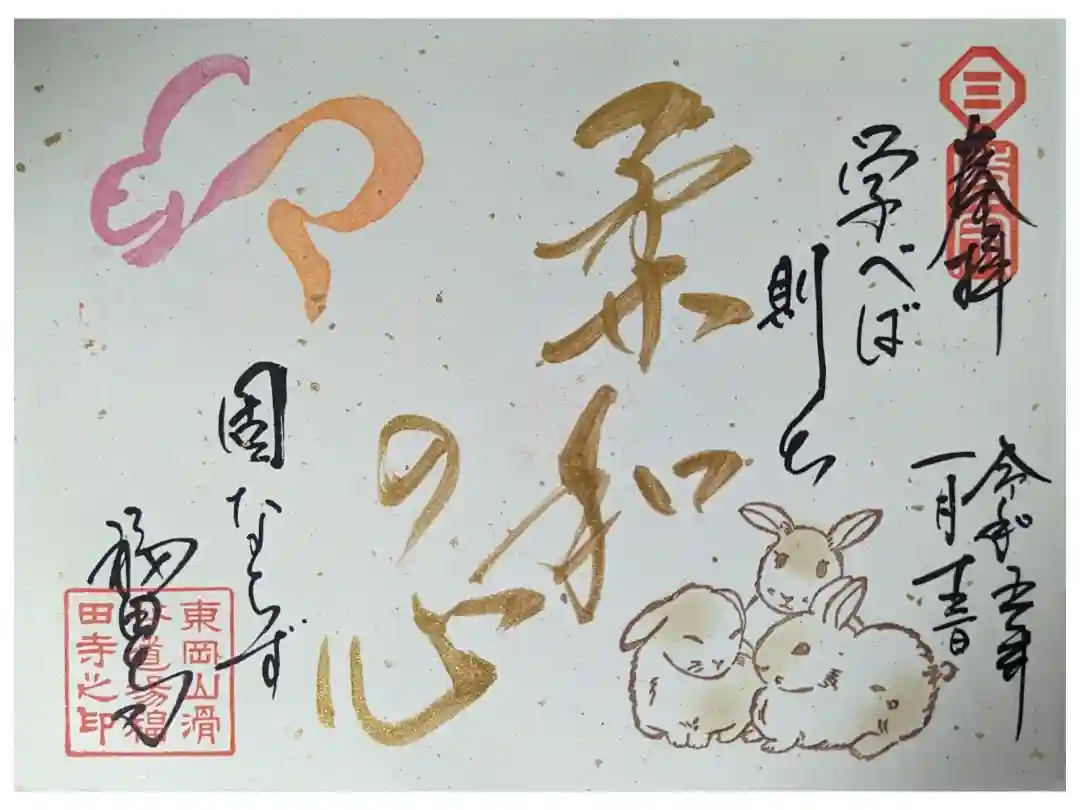 奉拝
令和五年
一月十五日
学べば
則ち
柔和
の心
固ならず
福田寺
東岡山滑
谷道場福
田寺之印